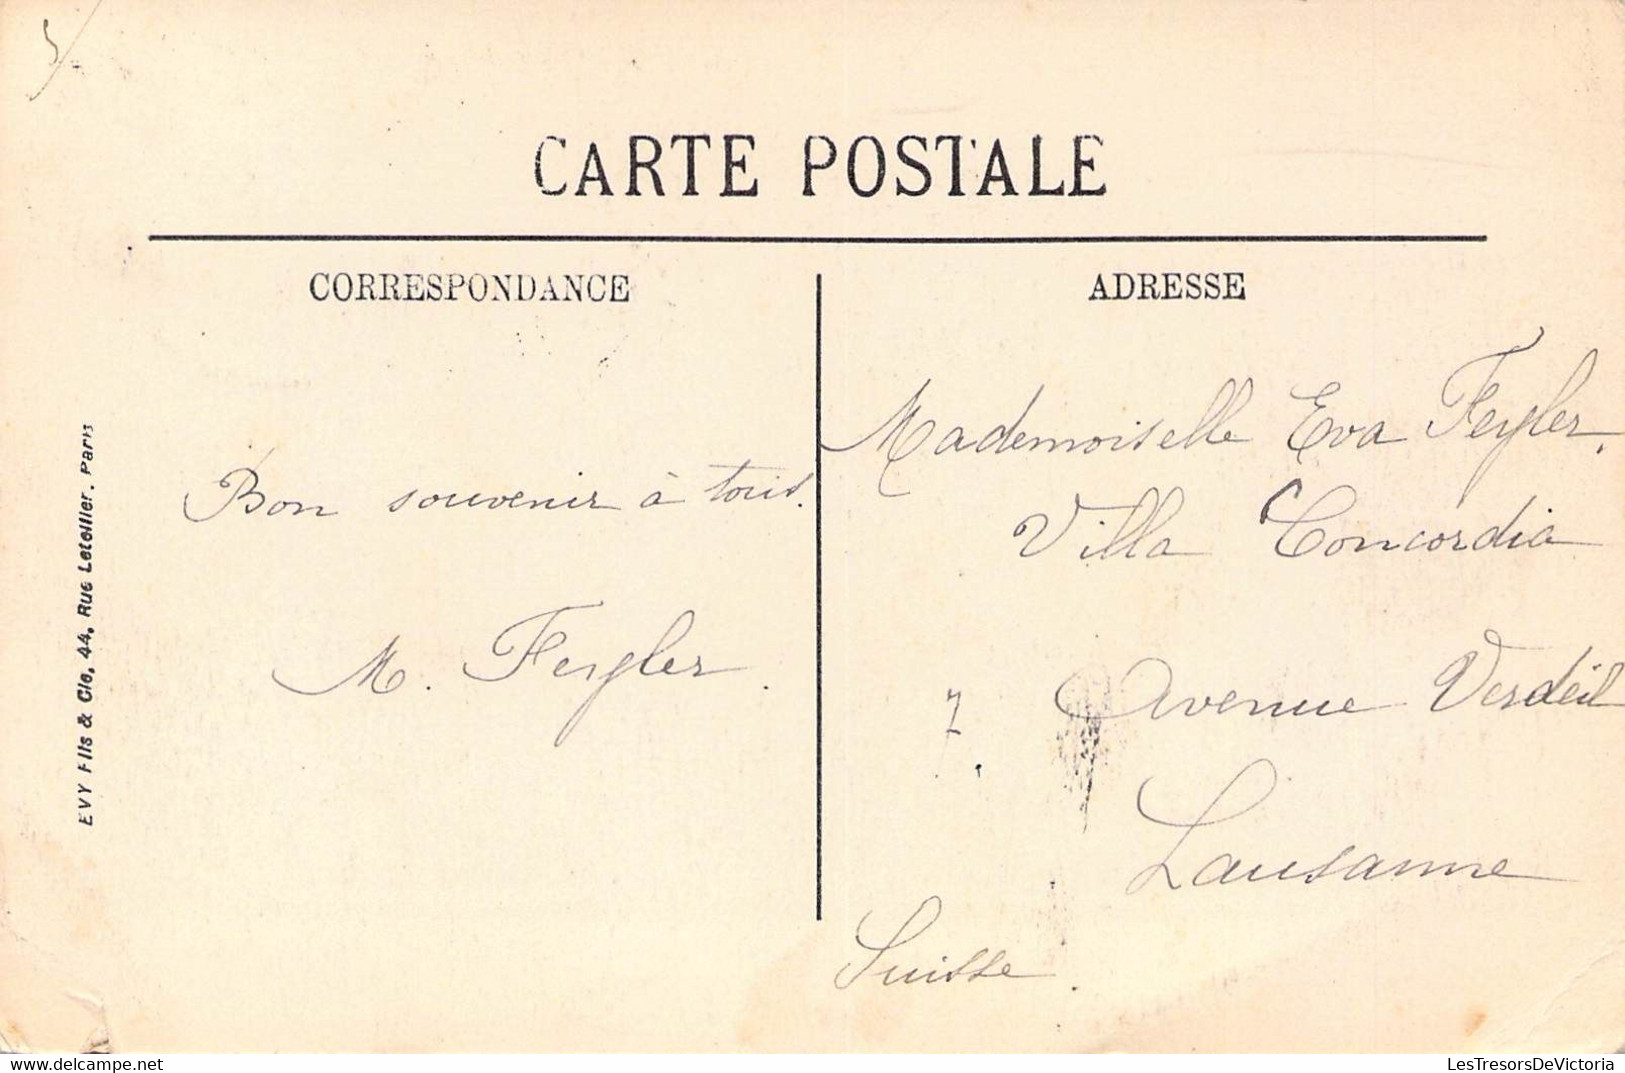 CARTE POSTALE
CORRESPONDANCE
ADRESSE
Bon souvenir à tous.
M. Feyler.
Mademoiselle Eva Feyler.
Villa Concordia
7. Avenue Verdeil
Lausanne
Suisse.
EVY Fils & Cie, 44, Rue Letellier. Paris
LesTresorsDeVictoria